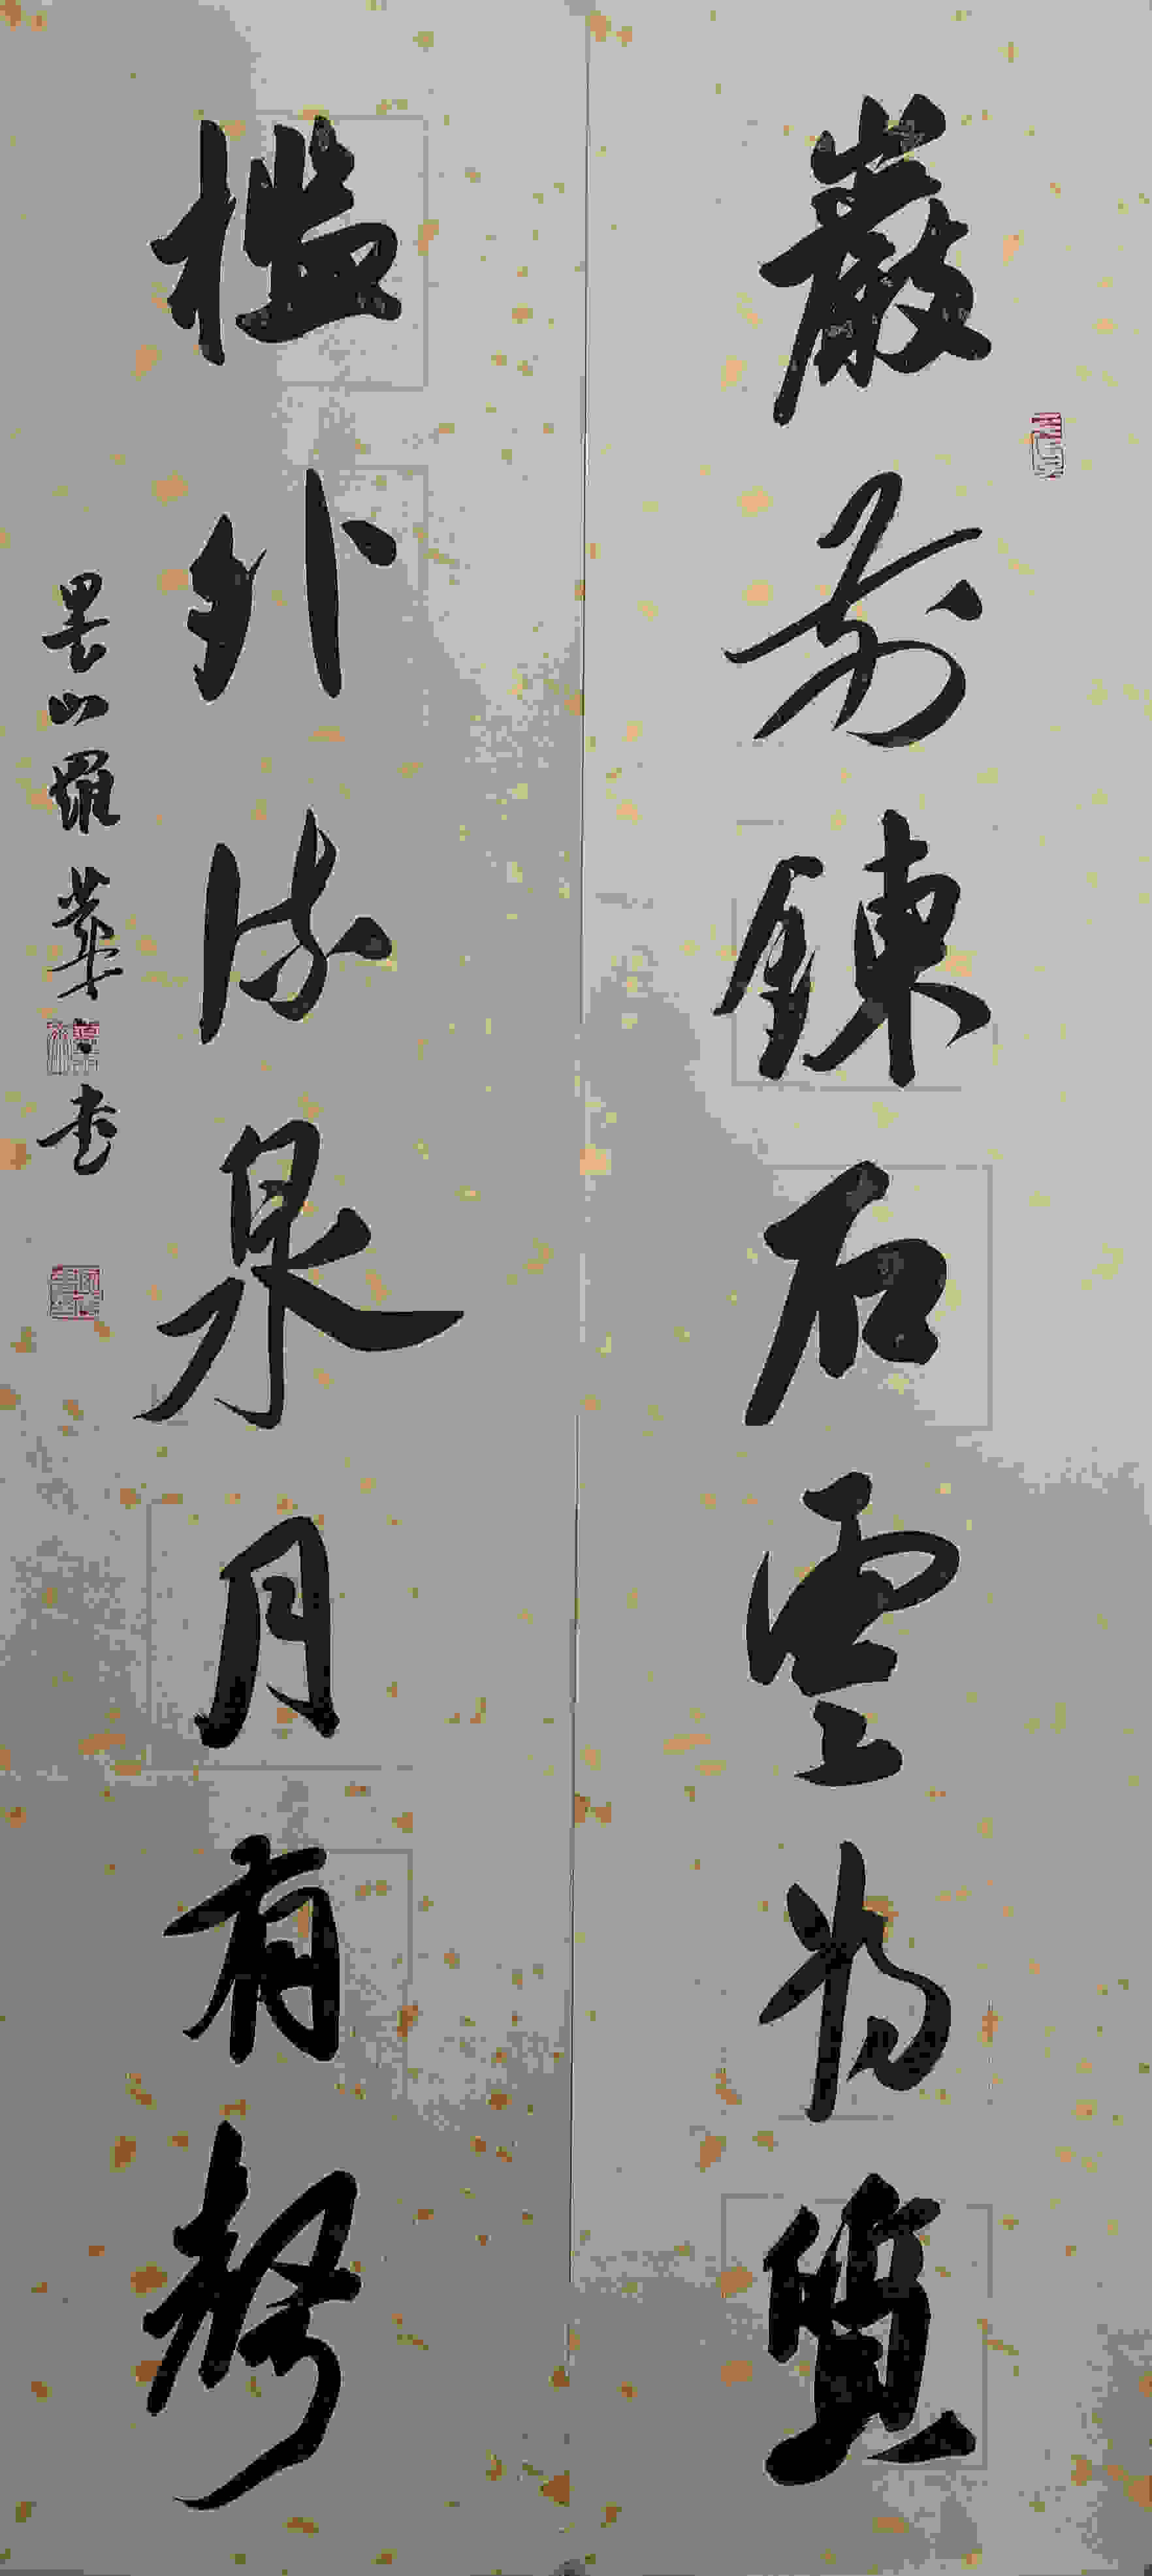 巖前鍊石雲為質
檻外流泉月有聲
昙山羅華書